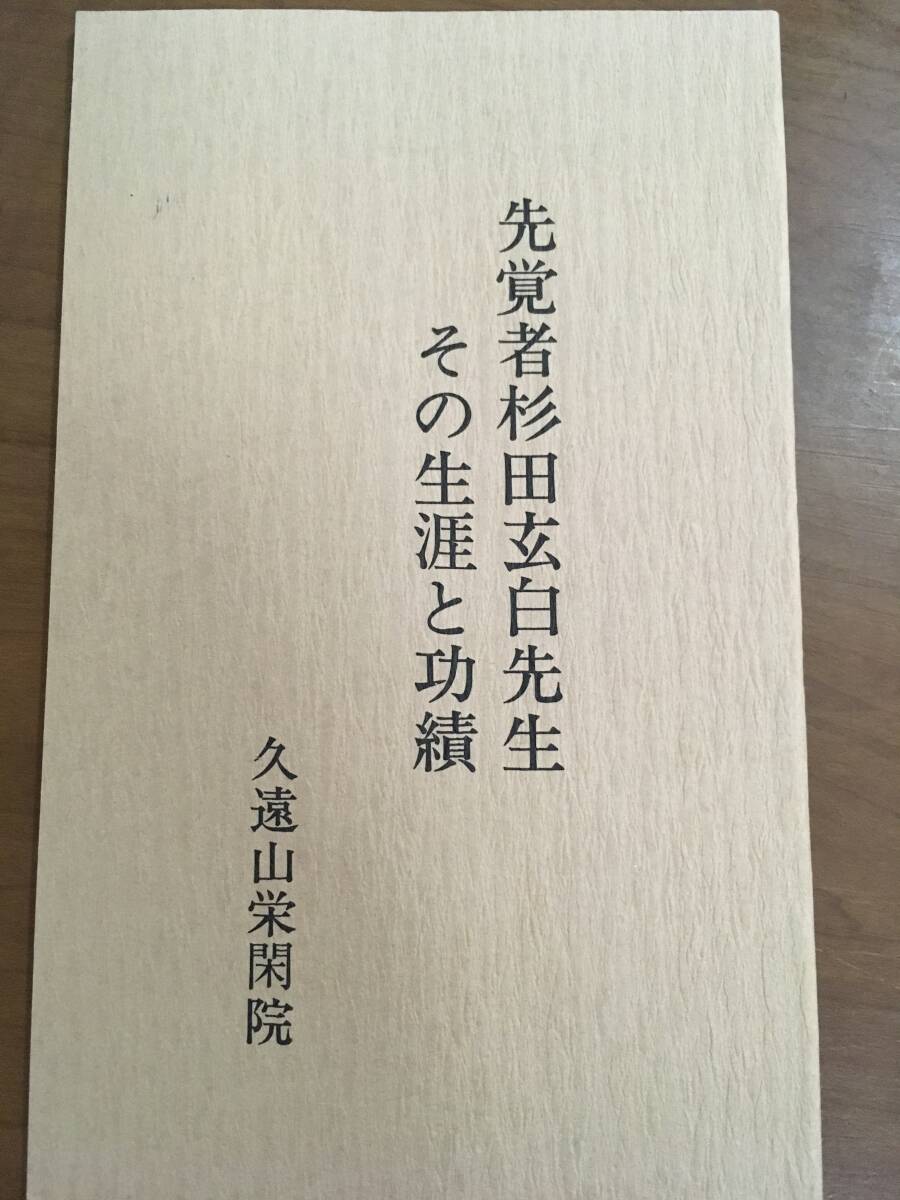 先覚者杉田玄白先生
その生涯と功績
久遠山栄閑院